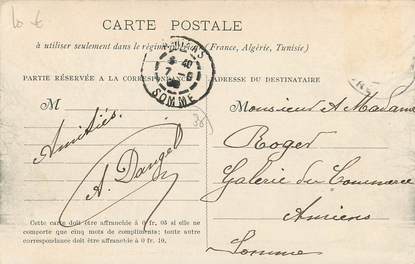 10 €
CARTE POSTALE
à utiliser seulement dans le régime (France, Algérie, Tunisie)
PARTIE RÉSERVÉE A LA CORRESPONDANCE
ADRESSE DU DESTINATAIRE
6 40
7 - 6
SOMME
M
Amitiés.
A. Dangel
Cette carte doit être affranchie à 0 fr. 05 si elle ne
comporte que cinq mots de compliments; toute autre
correspondance doit être affranchie à 0 fr. 10.
Monsieur A Madame
M
Roger
Galerie du Commerce
Amiens
Somme